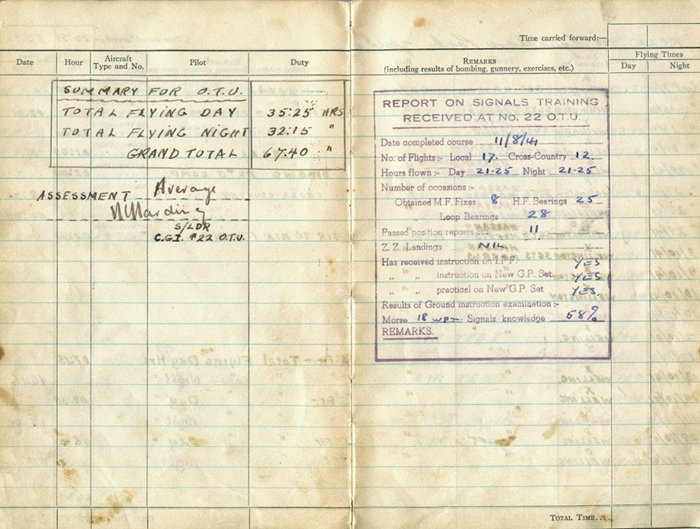 Date Hour Aircraft Type and No. Pilot Duty
SUMMARY FOR O.T.U.
TOTAL FLYING DAY 35:25 HRS
TOTAL FLYING NIGHT 32:15 "
GRAND TOTAL 67.40 "
ASSESSMENT Average
S/LDR
C.G.I. #22 O.T.U.
Time carried forward:—
REMARKS
(including results of bombing, gunnery, exercises, etc.)
Flying Times
Day Night
REPORT ON SIGNALS TRAINING
RECEIVED AT No. 22 O.T.U.
Date completed course 11/8/41
No. of Flights:- Local 17. Cross-Country 12
Hours flown:- Day 21-25 Night 21-25
Number of occasions:-
Obtained M.F. Fixes 8 H.F. Bearings 25
Loop Bearings 28
Passed position reports to 11
Z.Z. Landings NIL
Has received instruction on I.F.F. YES
" " instruction on New G.P. Set YES
" " practical on New G.P. Set YES
Results of Ground instruction examination:-
Morse 18 wpm Signals knowledge 58%
REMARKS.
TOTAL TIME